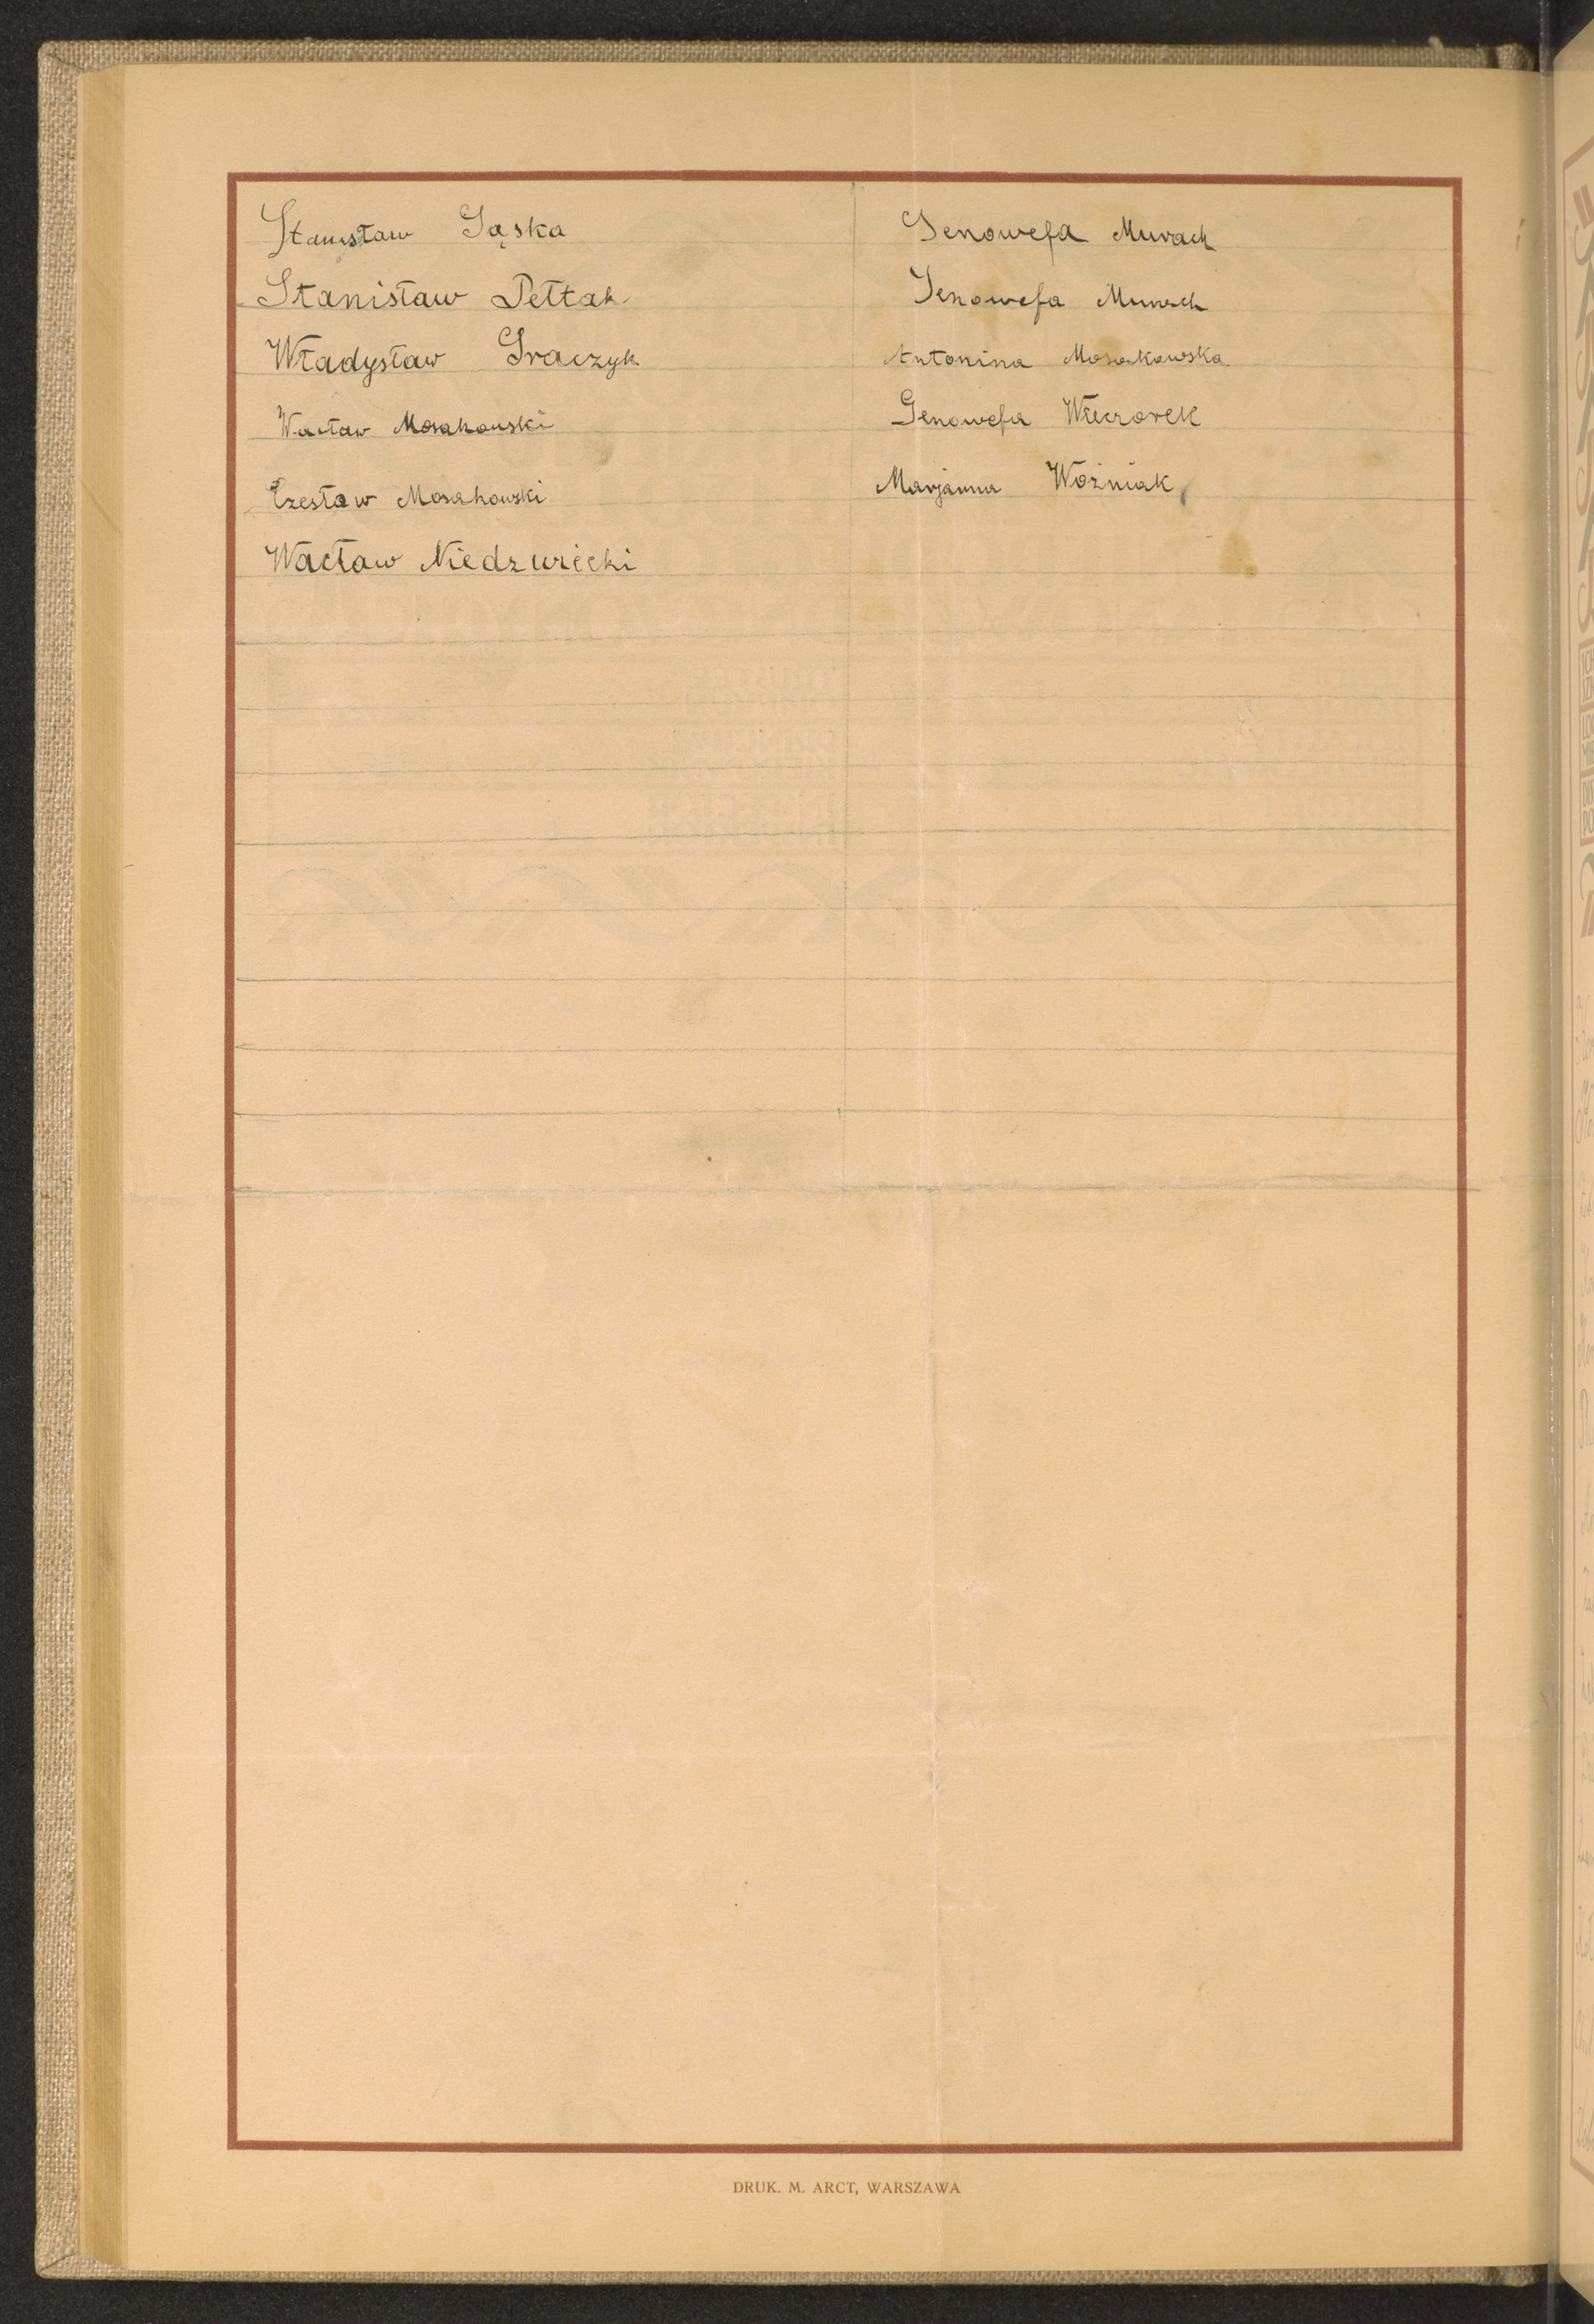 Stanisław Gąska
Stanisław Pełtak
Władysław Graczyk
Wacław Mosakowski
Czesław Mosakowski
Wacław Niedzwiecki
Genowefa Murach
Genowefa Murach
Antonina Mosakowska
Genowefa Wieczorek
Marjanna Woźniak
DRUK. M. ARCT, WARSZAWA